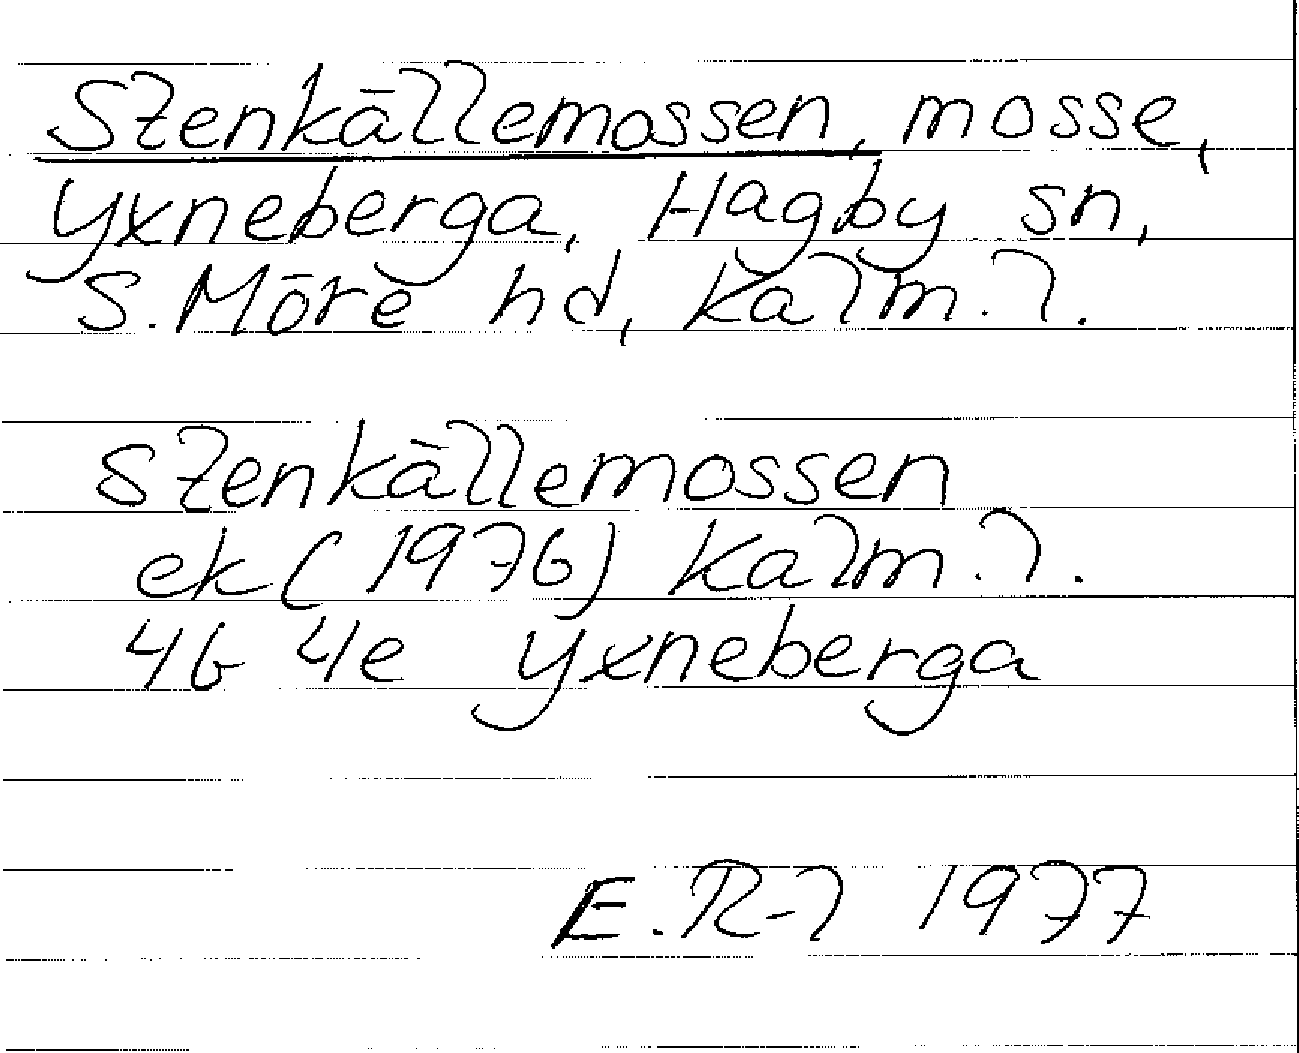 Stenkällemossen, mosse,
Yxneberga, Hagby sn,
S. Möre hd, Kalm. l.
Stenkällemossen
ek (1976) Kalm. l.
4G 4e Yxneberga
E. R-l 1977